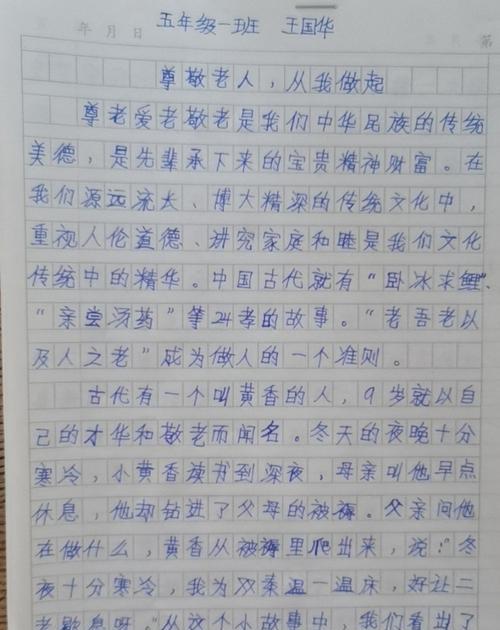 五年级一班 王国华
年 月 日
第
尊敬老人，从我做起
尊老爱老敬老是我们中华民族的传统
美德，是先辈承下来的宝贵精神财富。在
我们源远流长、博大精深的传统文化中，
重视人伦道德、讲究家庭和睦是我们文化
传统中的精华。中国古代就有“卧冰求鲤”、
“亲尝汤药”等24孝的故事。“老吾老以
及人之老”成为做人的一个准则。
古代有一个叫黄香的人，9岁就以自
己的才华和敬老而闻名。冬天的夜晚十分
寒冷，小黄香读书到深夜，母亲叫他早点
休息，他却钻进了父母的被褥。父亲问他
在做什么，黄香从被褥里爬出来，说：“冬
夜十分寒冷，我为双亲温一温床，好让二
老歇息呀。”从这个小故事中，我们看出了